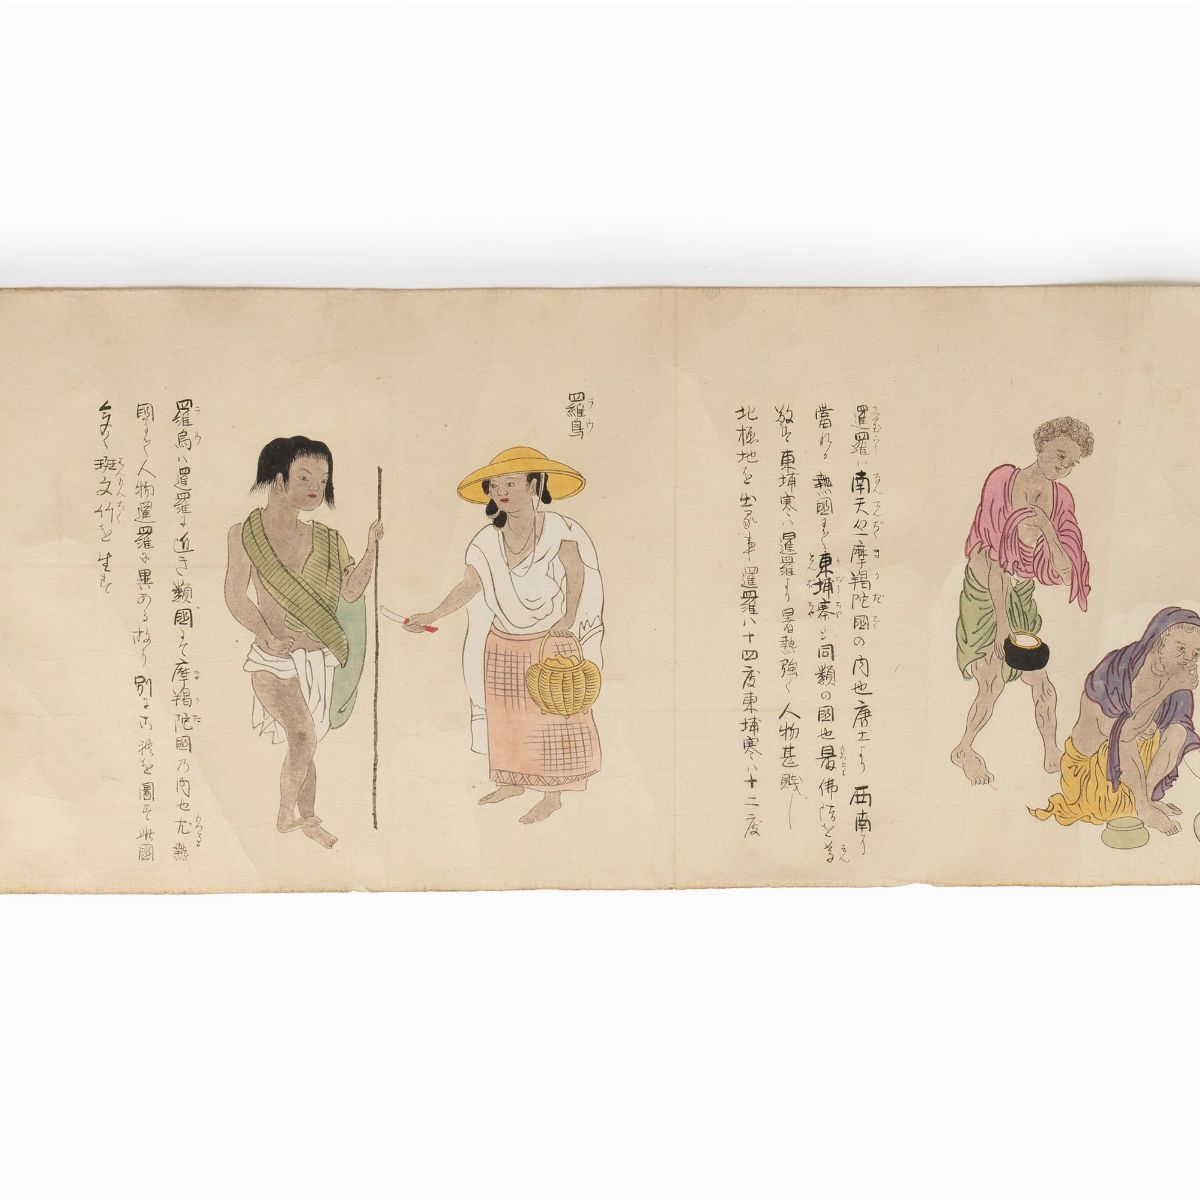 暹羅ハ南天竺摩羯陀國の内也唐土より西南に
當れる熱國にて東埔寨も同類の國也最佛法を尊
敬す東埔寨ハ暹羅より暑熱強く人物甚賤し
北極地を出る事暹羅ハ十四度東埔寨ハ十二度
羅烏
ラウ
羅烏ハ暹羅に近き類國にて摩羯陀國乃内也尤熱
國にして人物暹羅に異ある故に別に古務を圖す此國
多く斑文竹を生す